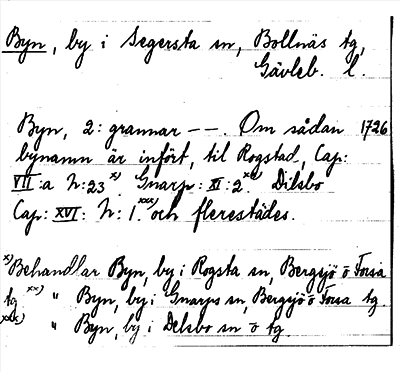 Byn, by i Segersta sn, Bollnäs tg,
Gävleb. l.
Byn, 2: grannar --. Om sådan 1726
bynamn är infört, til Rogstad, Cap:
VII:a N:23 x). Gnarp: XI:2. xx) Dilsbo
Cap: XVI: N: 1. xxx) och flerestädes.
x) Behandlar Byn, by i Rogsta sn, Bergsjö o Forsa
tg xx) " Byn, by i Gnarps sn, Bergsjö o Forsa tg.
xxx) " Byn, by i Delsbo sn o tg.